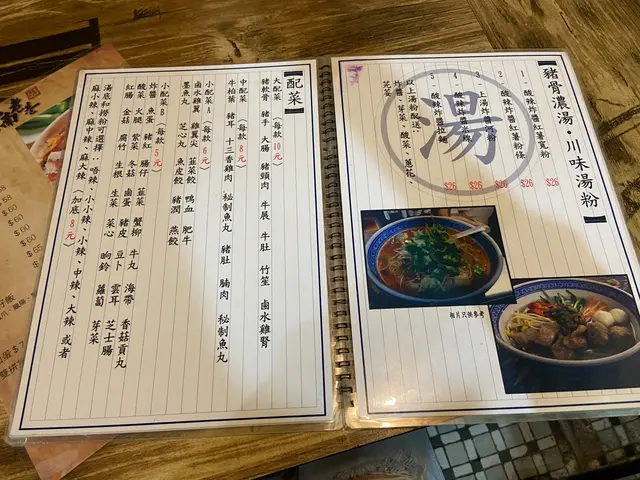 豬骨濃湯・川味湯粉
1 酸辣炸醬紅薯寬粉 $26
2 酸辣炸醬紅薯粉條 $26
3 上湯炸醬河粉 $26
4 酸辣炸醬米線 $26
5 酸辣炸醬拉麵 $26
以上湯粉配送：
炸醬、芽菜、酸菜、蔥花、
芫茜
湯
相片只供參考
配菜
大配菜 (每款10元)
豬軟骨 豬手 大腸 豬頸肉 牛展 牛肚 竹笙 鹵水雞腎
中配菜 (每款8元)
牛柏葉 豬耳 十三香雞肉 秘制魚丸 豬肚 腩肉 秘制魚丸
(每款6元)
鹵水雞翼 雞尖 韮菜餃 鴨血 肥牛
墨魚丸 芝心丸 魚皮餃 豬潤 燕餃
小配菜B (每款5元)
炸醬 魚蛋 豬紅 腸仔 韮菜 蟹柳 牛丸 海帶
酸菜 火腿 紫菜 冬菇 鹵蛋 豬皮 豆卜 雲耳 香菇貢丸
紅腸 金菇 腐竹 生根 生菜 菜心 响鈴 蘿蔔 芝士腸 芽菜
湯底和撈粉可選擇：唔辣、小小辣、小辣、中辣、大辣 或者
麻小辣、麻中辣、麻大辣 (加底8元)